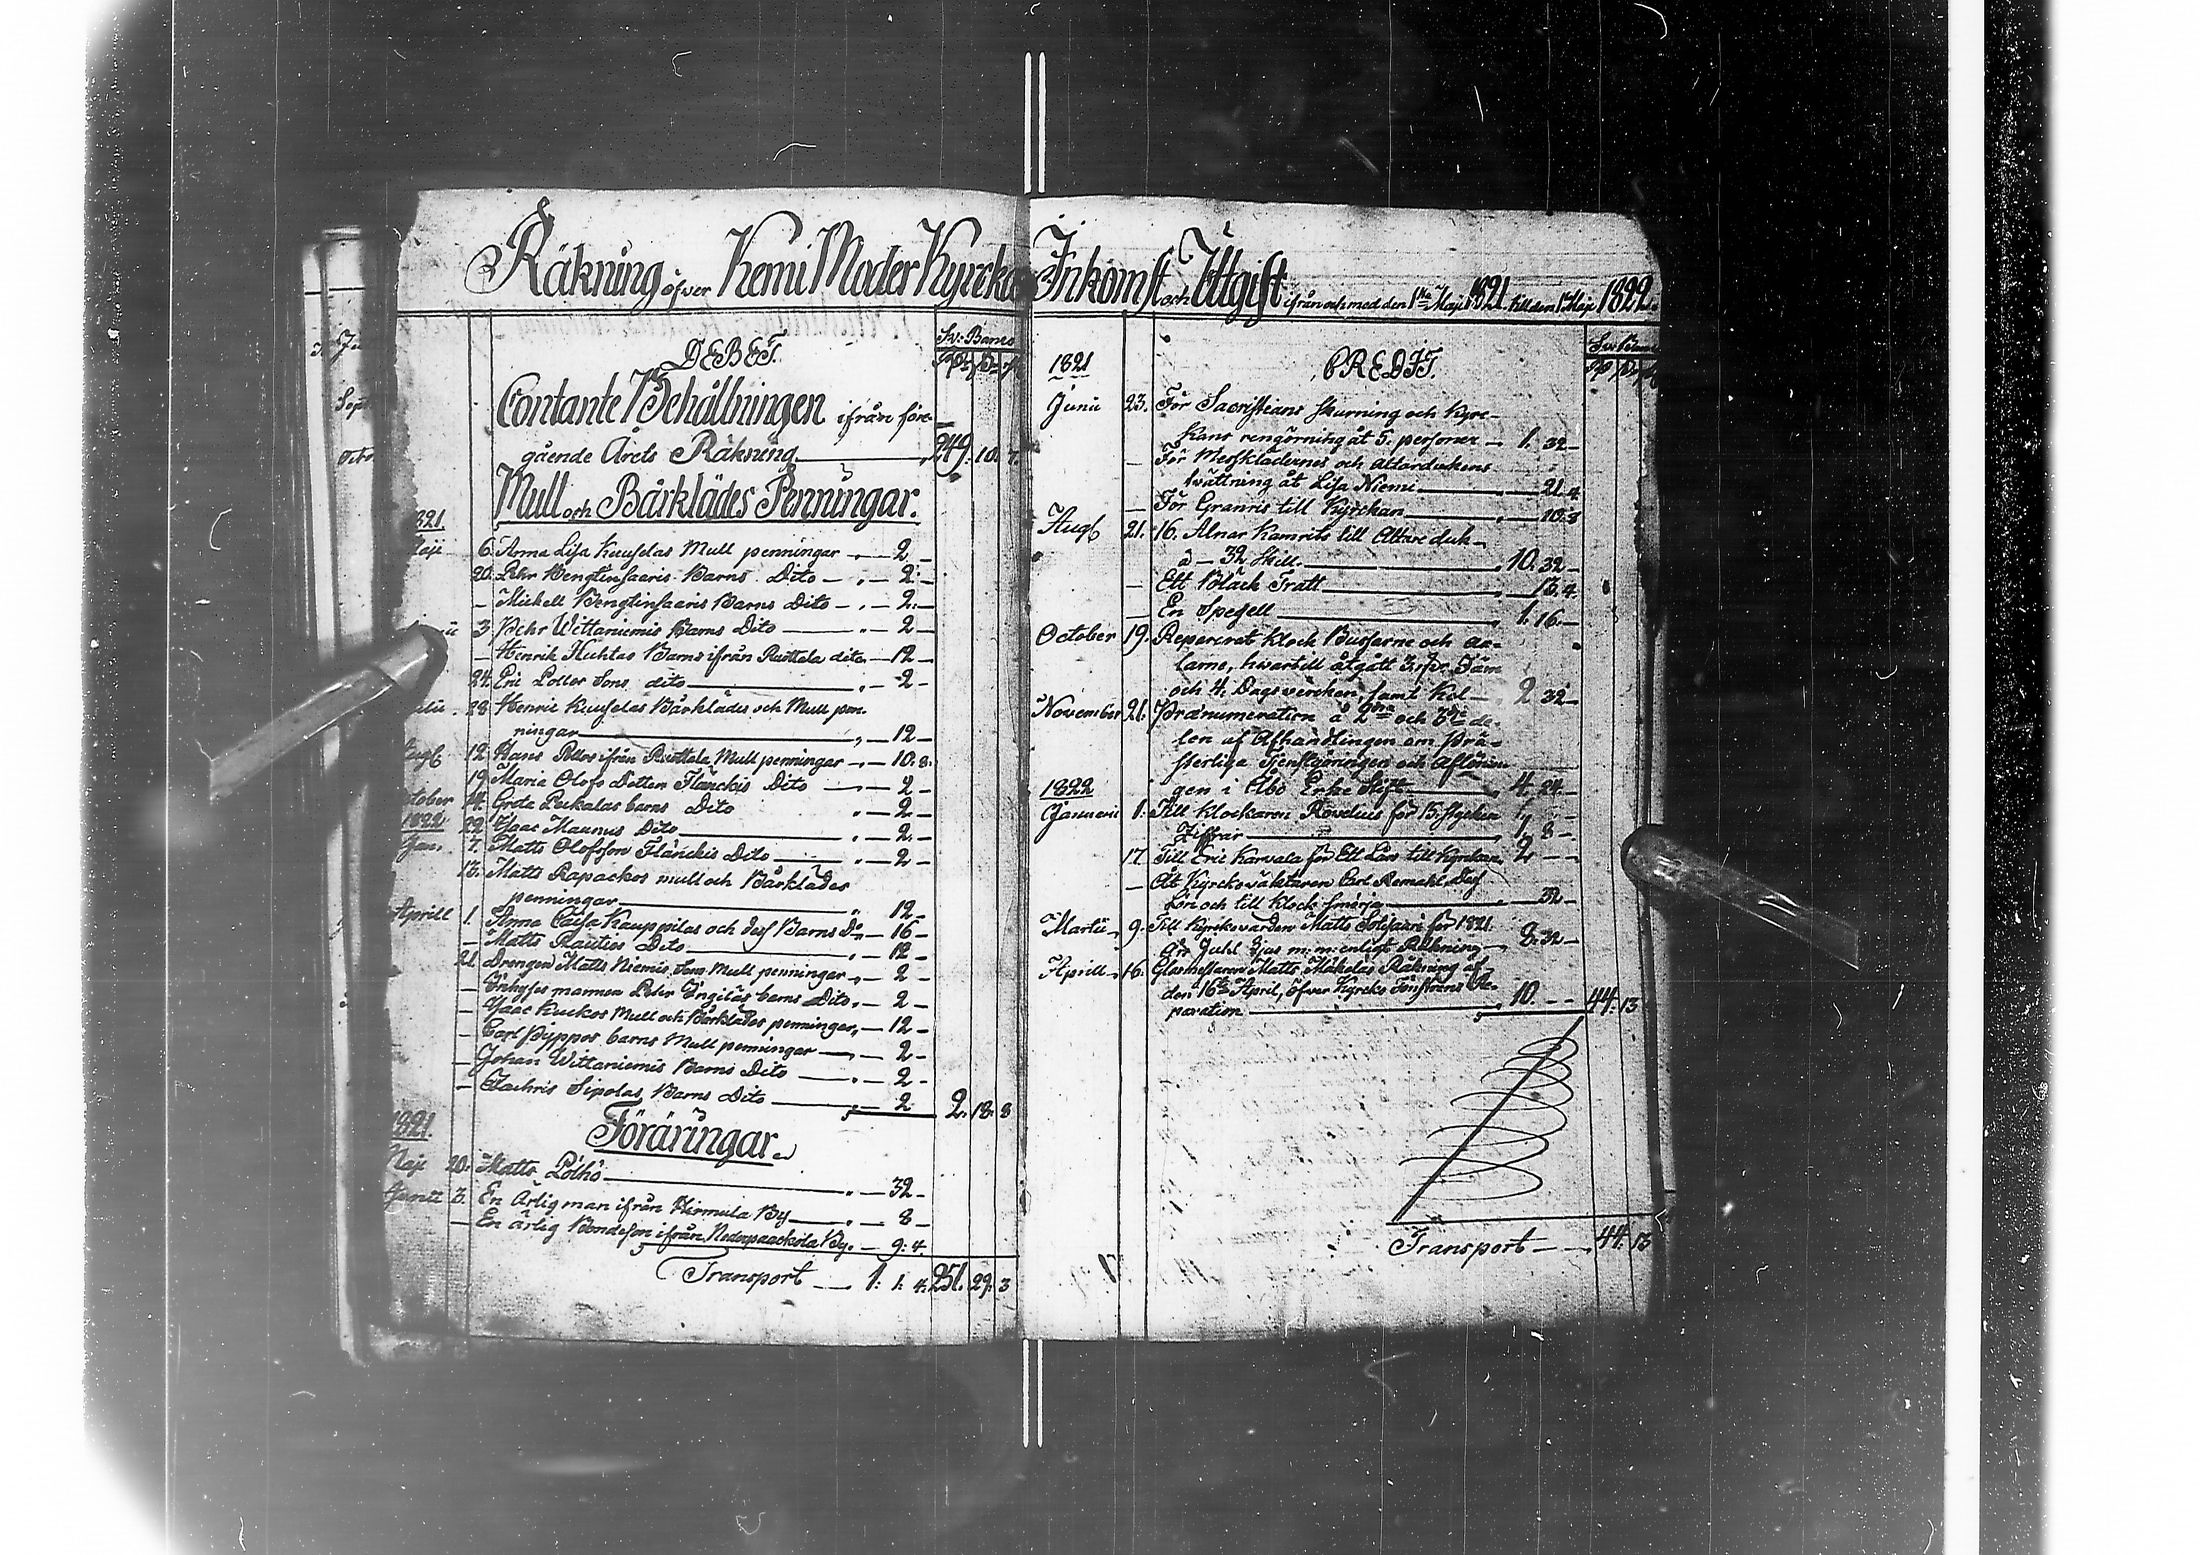 Räkning öfver Kemi Moder Kyrckas Inkomst och Utgift ifrån och med den 1sta Maji 1821 till den 1 Maji 1822.
DEBET.
Sv: Banco
Contante Behållningen ifrån före-
gående Årets Räkning 249. 10. 7.
Mull och Bårklädes Penningar.
1821.
Maji 6. Anna Lisa Kuuselas Mull penningar 2
20. Pehr Bengtinsaaris Barns Dito 2
Mickell Bengtinsaaris Barns Dito 2
3 Pehr Wittaniemis Barns Dito 2
Henrik Huhtas Barns ifrån Ruottala dito 12
24. Eric Poller Sons dito 2
28 Henric Kuuselas Bårklädes och Mull pen-
ningar 12
Aug. 12. Hans ifrån Ruottala Mull penningar 10. 8.
19 Maria Olofs Dotter Flänckis Dito 2
October 14. Greta Peckalas barns Dito 2
1822 22. Isaac Maunus Dito 2
Jan. 7. Matts Olofsson Flänckis Dito 2
13. Matts Rapackos mull och Bårklädes
penningar 12
Aprill 1. Anna Caisa Kauppilas och des Barns Do 16
Matts Rautios Dito 12
21 Drengen Matts Niemis Sons Mull penningar 2
Inhyses mannen Pehr Engiläs barns Dito 2
Isaac Kuckos Mull och Bårklädes penningar 12
Carl Pyppos barns Mull penningar 2
Johan Wittaniemis Barns Dito 2
Zachris Sipolas Barns Dito 2 2. 18. 8
Föräringar.
1821.
Maji 20. Matts Pöthö 32
Junii 3. En Ärlig man ifrån Hirmula By 8
En ärlig Bondeson ifrån Nederpaackola By. 9. 4.
Transport 1. 1. 4. 251. 29. 3
CREDIT.
Sv: Banco
1821
Junii 23. För Sacristians skurning och Kyrc-
kans rengörning åt 5. personer 1. 32
För Messklädernes och altardukens
tvättning åt Lisa Niemi 21. 4
För Granris till Kyrckan 10. 8
Aug. 21. 16. Alnar Kamrits till Altare duk
à 32 Skill. 10. 32
Ett Bläck Tratt 13. 4.
En Spegell 1. 16
October 19. Reparerat klock Bussarne och ax-
larne, hwartill åtgått Järn
och 4. Dagsvercken, samt Kol 2 32
November 21. Prænumeration å 2dra och 3dje de-
len af Afhandlingen om Prä-
sterliga Tjenstgöringen och Aflönin-
1822 gen i Åbo Erke Stift 4. 24
Januarii 1. Till klockaren Rovelius för 15. stycken
Ziffrar 1. 8
17. Till Eric Karvala för Ett Lås till Kyrckan 2
Åt Kyrckoväktaren Carl Remahl, Des
Lön och till Klock smörja 32
Martii 9. Till Kyrckovärden Matts Sotisaari för 1821.
års Juhl Ljus m: m: enligt Räkning 2. 32
Aprill 16. Glasmestaren Matts Mäkeläs Räkning af
den 16de April, öfver Kyrcko Fönstrens Re-
paration 10. 44. 13
Transport 44. 13